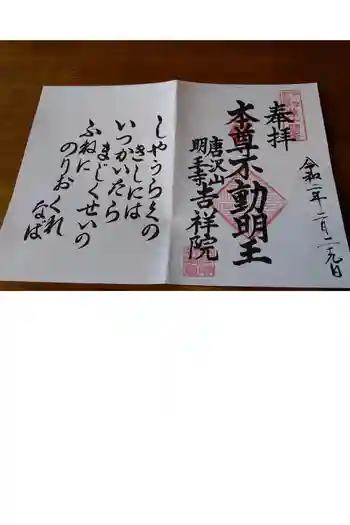 奉拝
本尊不動明王
唐沢山
明王寺吉祥院
令和二年二月二十九日
しやうらくの
きしには
いつかいたら
まじくせいの
ふねに
のりおくれ
なば